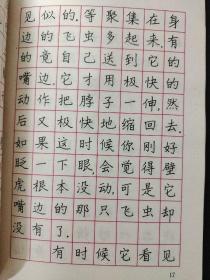 见似的。等聚集在身
边的飞虫多起来，有
的竟自己送到它的
嘴边它才用极快的
动作把脖子一伸，然
后又极快地缩回去。
如果这时候你刚好
眨一下眼，会觉得壁
虎根本没动，可是它
嘴边的那只飞虫却
没有了。有时候它看见
17